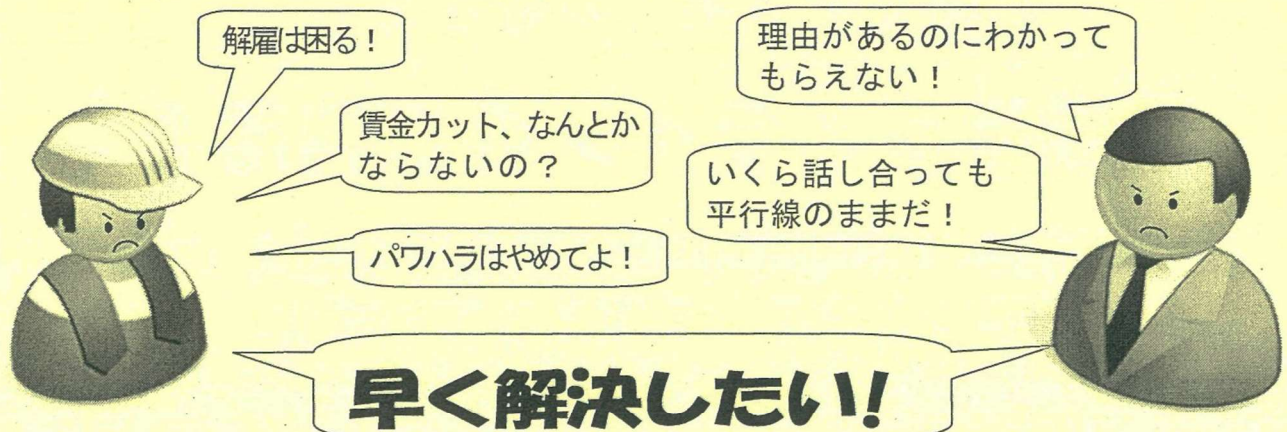 解雇は困る！
賃金カット、なんとか
ならないの？
パワハラはやめてよ！
理由があるのにわかって
もらえない！
いくら話し合っても
平行線のままだ！
早く解決したい!